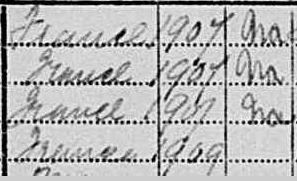 France 1907 Na
France 1907 Na
France 1907 Na
France 1909